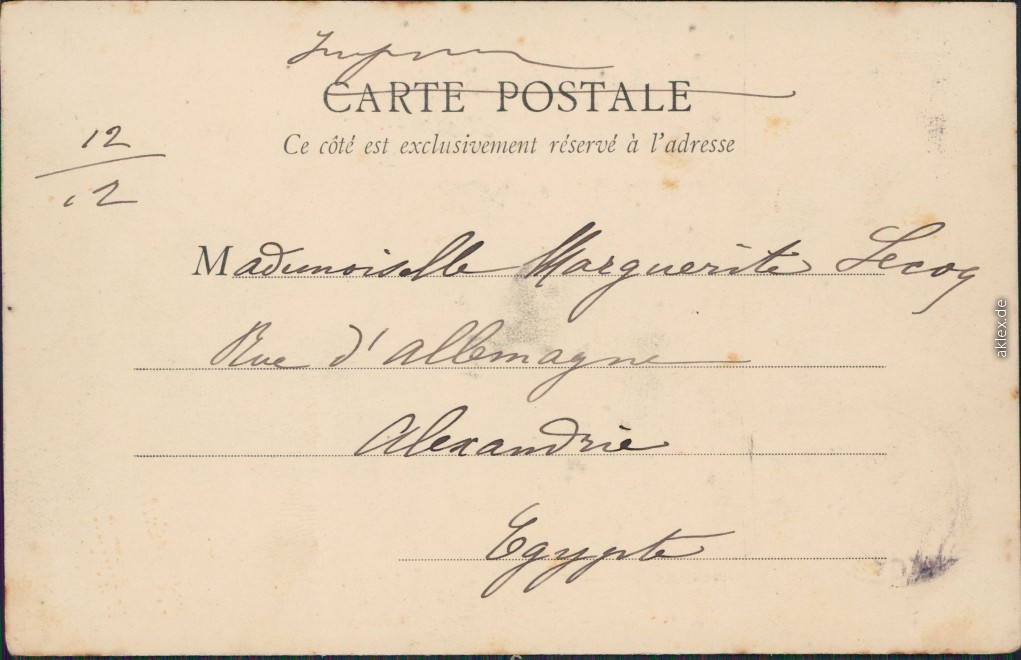 CARTE POSTALE
Ce côté est exclusivement réservé à l'adresse
12
12
Mademoiselle Marguerite Lecoq
Rue d'Allemagne
Alexandrie
Egypte
aklex.de